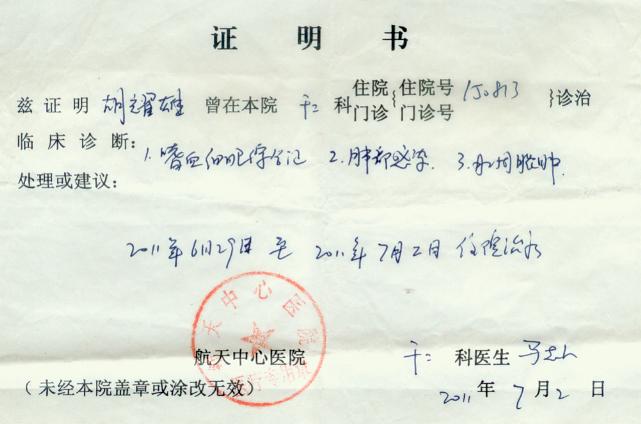 证明书
兹证明 胡耀雄 曾在本院 干二 科 住院 门诊 住院号 门诊号 150813 诊治
临床诊断:
1. 嗜血细胞综合记 2. 肺部感染. 3. 肛周脓肿.
处理或建议:
2011年6月29日至2011年7月2日住院治疗
航天中心医院
航天中心医院
干二 科医生
(未经本院盖章或涂改无效)
2011年7月2日